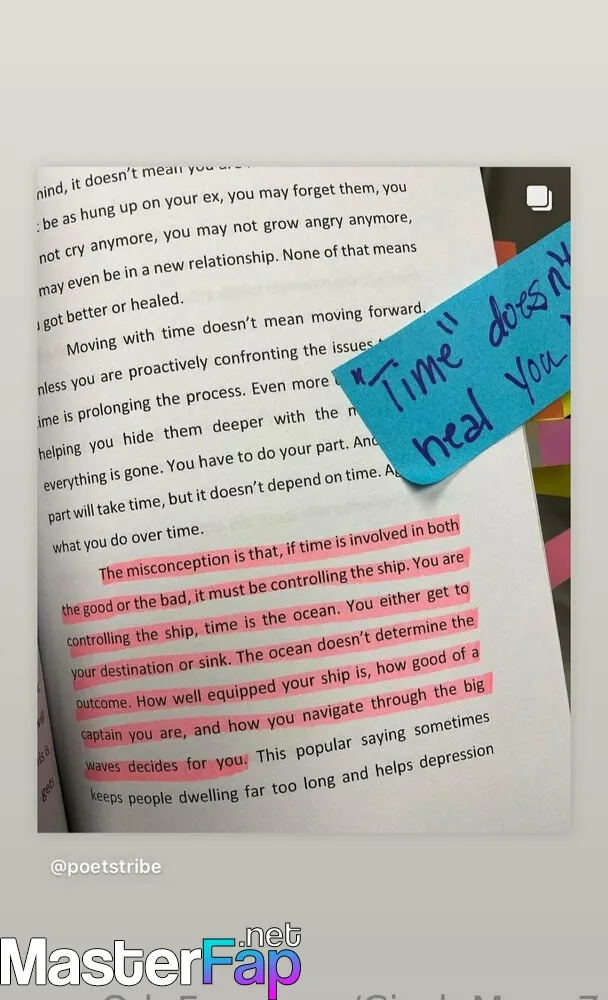 mind, it doesn't mean you are
be as hung up on your ex, you may forget them, you
not cry anymore, you may not grow angry anymore,
may even be in a new relationship. None of that means
got better or healed.
Moving with time doesn't mean moving forward.
unless you are proactively confronting the issues
time is prolonging the process. Even more
helping you hide them deeper with the
everything is gone. You have to do your part. And
part will take time, but it doesn't depend on time.
what you do over time.
The misconception is that, if time is involved in both
the good or the bad, it must be controlling the ship. You are
controlling the ship, time is the ocean. You either get to
your destination or sink. The ocean doesn't determine the
outcome. How well equipped your ship is, how good of a
captain you are, and how you navigate through the big
waves decides for you. This popular saying sometimes
keeps people dwelling far too long and helps depression
"Time" doesn't
heal you
@poetstribe
MasterFap.net